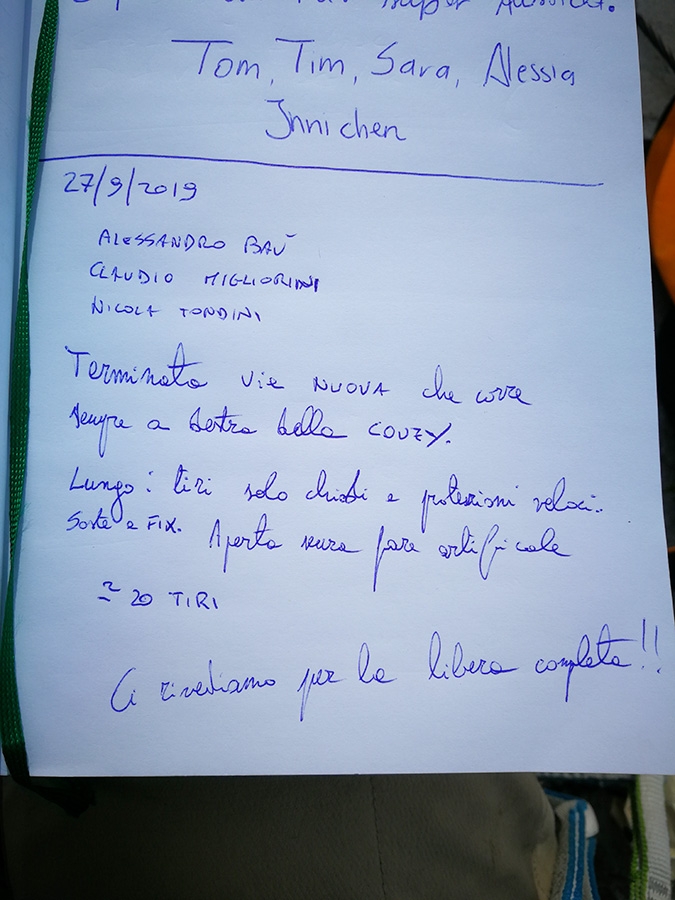 super Aussicht.
Tom, Tim, Sara, Alessia
Innichen
27/9/2019
ALESSANDRO BAÙ
CLAUDIO MIGLIORINI
NICOLA TONDINI
Terminata vie NUOVA che corre
sempre a destra della COUZY.
Lungo i tiri solo chiodi e protezioni veloci.
Soste a FIX. Aperta senza fare artificiale
≃ 20 TIRI
Ci rivediamo per la libera completa!!